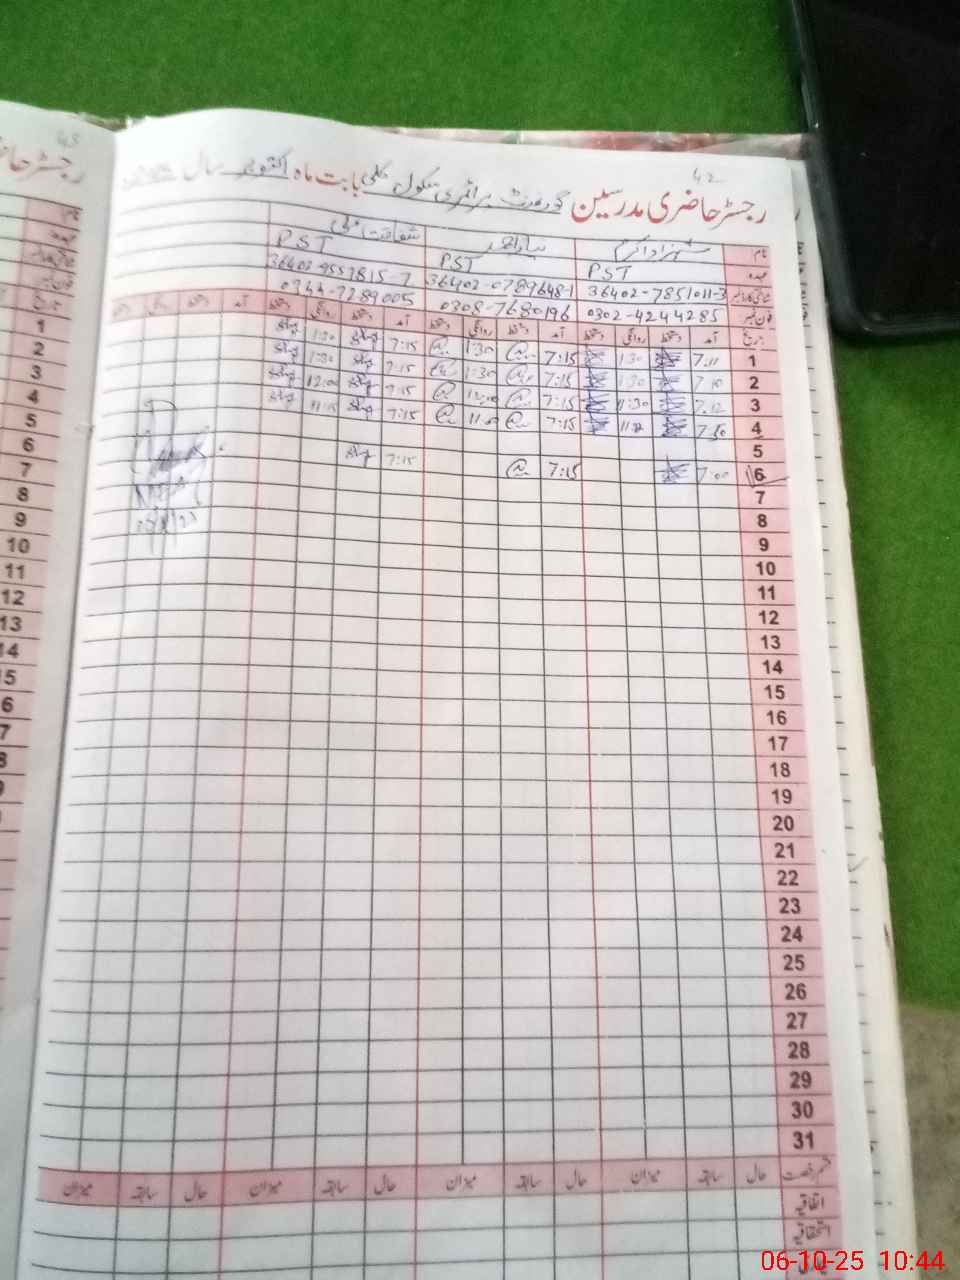 42
رجسٹر حاضری مدرسین گورنمنٹ پرائمری سکول بابت ماہ اکتوبر سال
نام شہزاد اکرم شفاقت علی
عہدہ PST PST PST
36402-7851011-3 36402-0789648-1 36402-9557815-7
فون نمبر 0302-4244285 0308-7680196 0344-7289005
تاریخ آمد دستخط روانگی دستخط آمد دستخط روانگی دستخط آمد دستخط روانگی دستخط آمد دستخط روانگی دستخط
1 7:11 1:30 7:15 1:30 7:15 1:30
2 7:10 1:30 7:15 1:30 7:15 1:30
3 7:12 11:30 7:15 7:15 12:00
4 7:15 7:15 11:15
5
6 7:00 7:15 7:15
7
8
9
10
11
12
13
14
15
16
17
18
19
20
21
22
23
24
25
26
27
28
29
30
31
قسم رخصت حال سابقہ میزان حال سابقہ میزان حال سابقہ میزان حال سابقہ میزان
اتفاقیہ
استحقاقیہ
48
رجسٹر حا
نام
عہدہ
فون نمبر
تاریخ
1
2
3
4
5
6
7
8
9
10
11
12
13
14
15
06-10-25 10:44